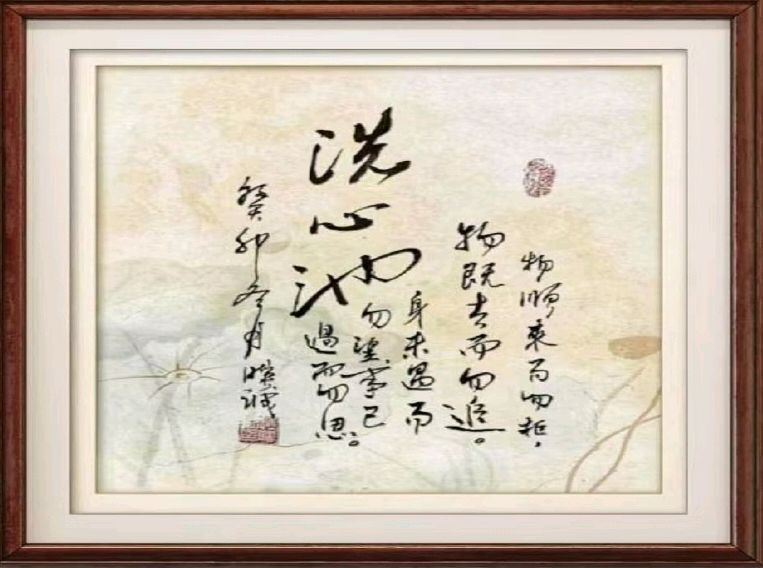 物顺来而勿拒，
物既去而勿追。
身未遇而
勿望，事已
過而勿思。
洗心池
癸卯冬月